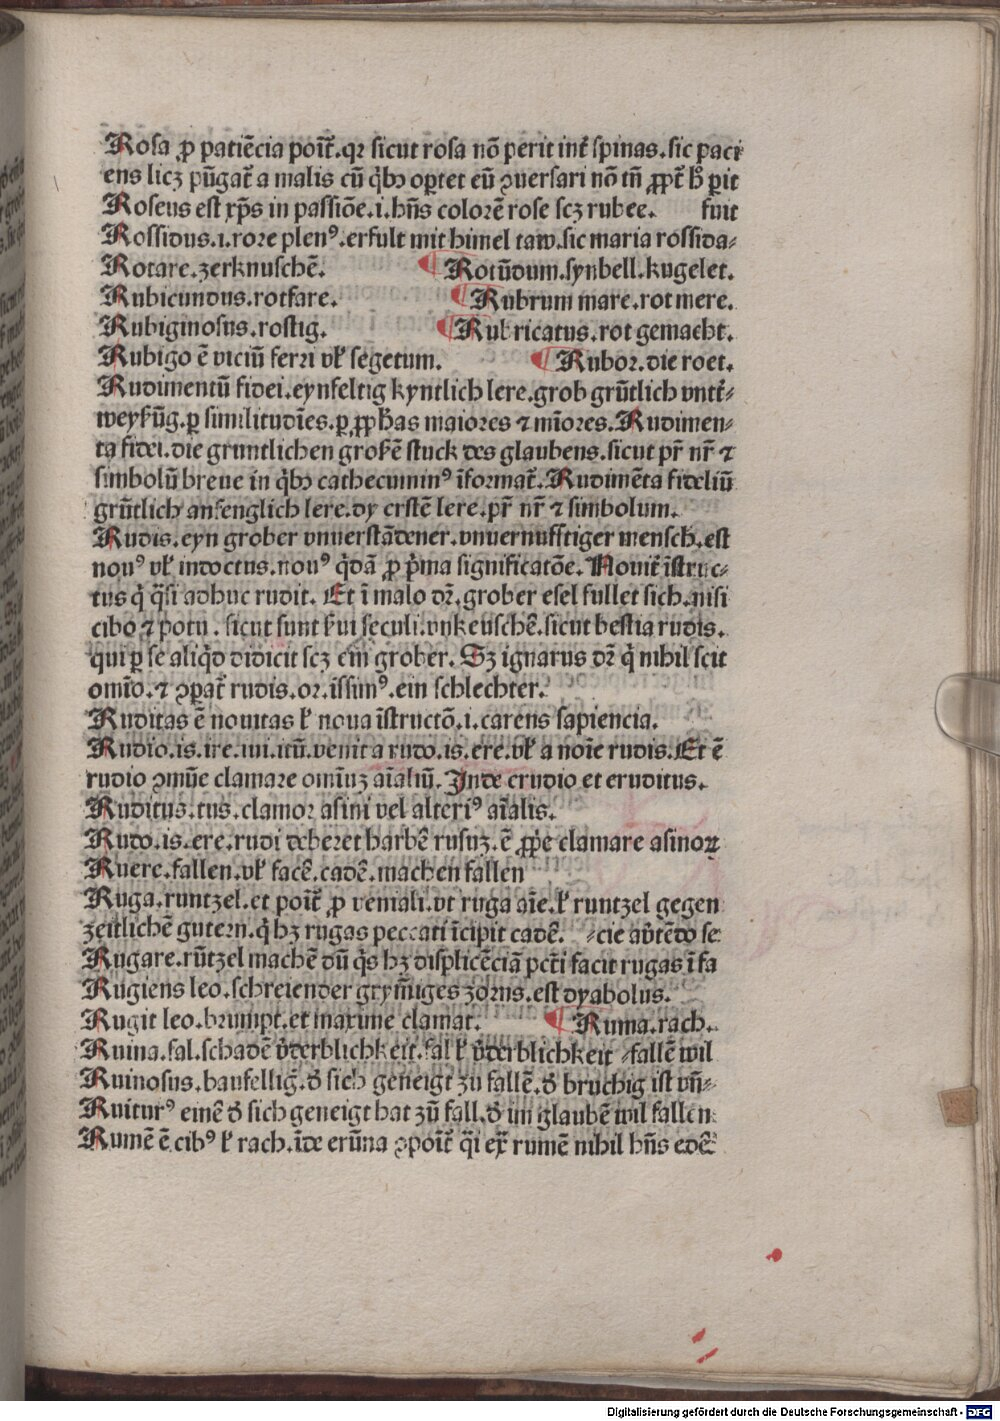 Rosa ꝓ patiēcia poīt̄. qꝛ sicut rosa nō perit int̄ spinas. sic paci
ens licꝫ pūgat̄ a malis cū qͥbꝰ oꝑtet eū ꝯuersari nō tn̄ ꝓpt̄ hͦ perit
Roseus est xp̄s in passiōe. i. hn̄s colorē rose scꝫ rubee. fuit
Rossidus. i. rore plenꝰ. erfult mit himel taw. sic maria rossida⸗
Rotare. zerknuschē. Rotūdum. synbell. kugelet.
Rubicundus. rotfare. Rubrum mare. rot mere.
Rubiginosus. rostig. Rubricatus. rot gemacht.
Rubigo ē viciū ferri vl̓ segetum. Rubor. die roet.
Rudimentū fidei. eynfeltig kyntlich lere. grob grūtlich vnt̄⸗
weyßūg. ꝑ similitudīes. ꝑ ꝓphas maiores ⁊ mīores. Rudimen⸗
ta fidei. die gruntlichen großē stuck des glaubens. sicut pr̄ nr̄ ⁊
simbolū breue in qͥbꝰ cathecuminꝰ īformat̄. Rudimēta fideliū
grūtlich anfenglich lere. dy erstē lere. pr̄ nr̄ ⁊ simbolum.
Rudis. eyn grober vnuerstādener. vnuernufftiger mensch. est
nouꝰ vl̓ indoctus. nouꝰ qͥdā ꝓ pͥma significatōe. Nouit̄ īstruc⸗
tus qͥ qͣsi adhuc rudit. Et ī malo dr̄. grober esel fullet sich. nisi
cibo ⁊ potu. sicut sunt s̓ui seculi. vnkeuschē. sicut bestia rudis.
qui ꝑ se aliqͥd didicit scꝫ ein grober. Sꝫ ignarus dr̄ qͥ nihil scit
omīo. ⁊ ꝯꝑat̄ rudis. or. issimꝰ. ein schlechter.
Ruditas ē nouitas l̓ noua īstructō. i. carens sapiencia.
Rudio. is. ire. iui. itū. venit a rudo. is. ere. vl̓ a noīe rudis. Et ē
rudio ꝯmūe clamare omīuꝫ aīaliū. Inde erudio et eruditus.
Ruditus. tus. clamor asini vel alteriꝰ aīalis.
Rudo. is. ere. rudi deberet habē rusuꝫ. ē ꝓpͥe clamare asinoꝝ
Ruere. fallen. vl̓ facē. cadē. machen fallen
Ruga. runtzel. et poīt̄ ꝓ veniali. vt ruga aīe. l̓ runtzel gegen
zeitlichē gutern. qͥ hꝫ rugas peccati īcipit cadē. ⸗cie abͣtēdo se
Rugare. rūtzel machē dū qͥs hꝫ displicēciā pctī facit rugas ī fa
Rugiens leo. schreiender grym̄iges zorns. est dyabolus.
Rugit leo. brumpt. et maxime clamat. Ruma. rach.
Ruina. fal. schadē v̓derblichkeit. fal l̓ v̓derblichkeit ⸗fallē wil
Ruinosus. baufellig. d̓ sich geneigt zu fallē. d̓ bruchig ist vn̄⸗
Ruiturꝰ einē d̓ sich geneigt hat zū fall. d̓ im glaubē wil fallen
Rumē ē cibꝰ l̓ rach. īde erūna ꝯpoīt̄ qͣsi ex̄ rumē nihil hn̄s edē
Digitalisierung gefördert durch die Deutsche Forschungsgemeinschaft - DFG